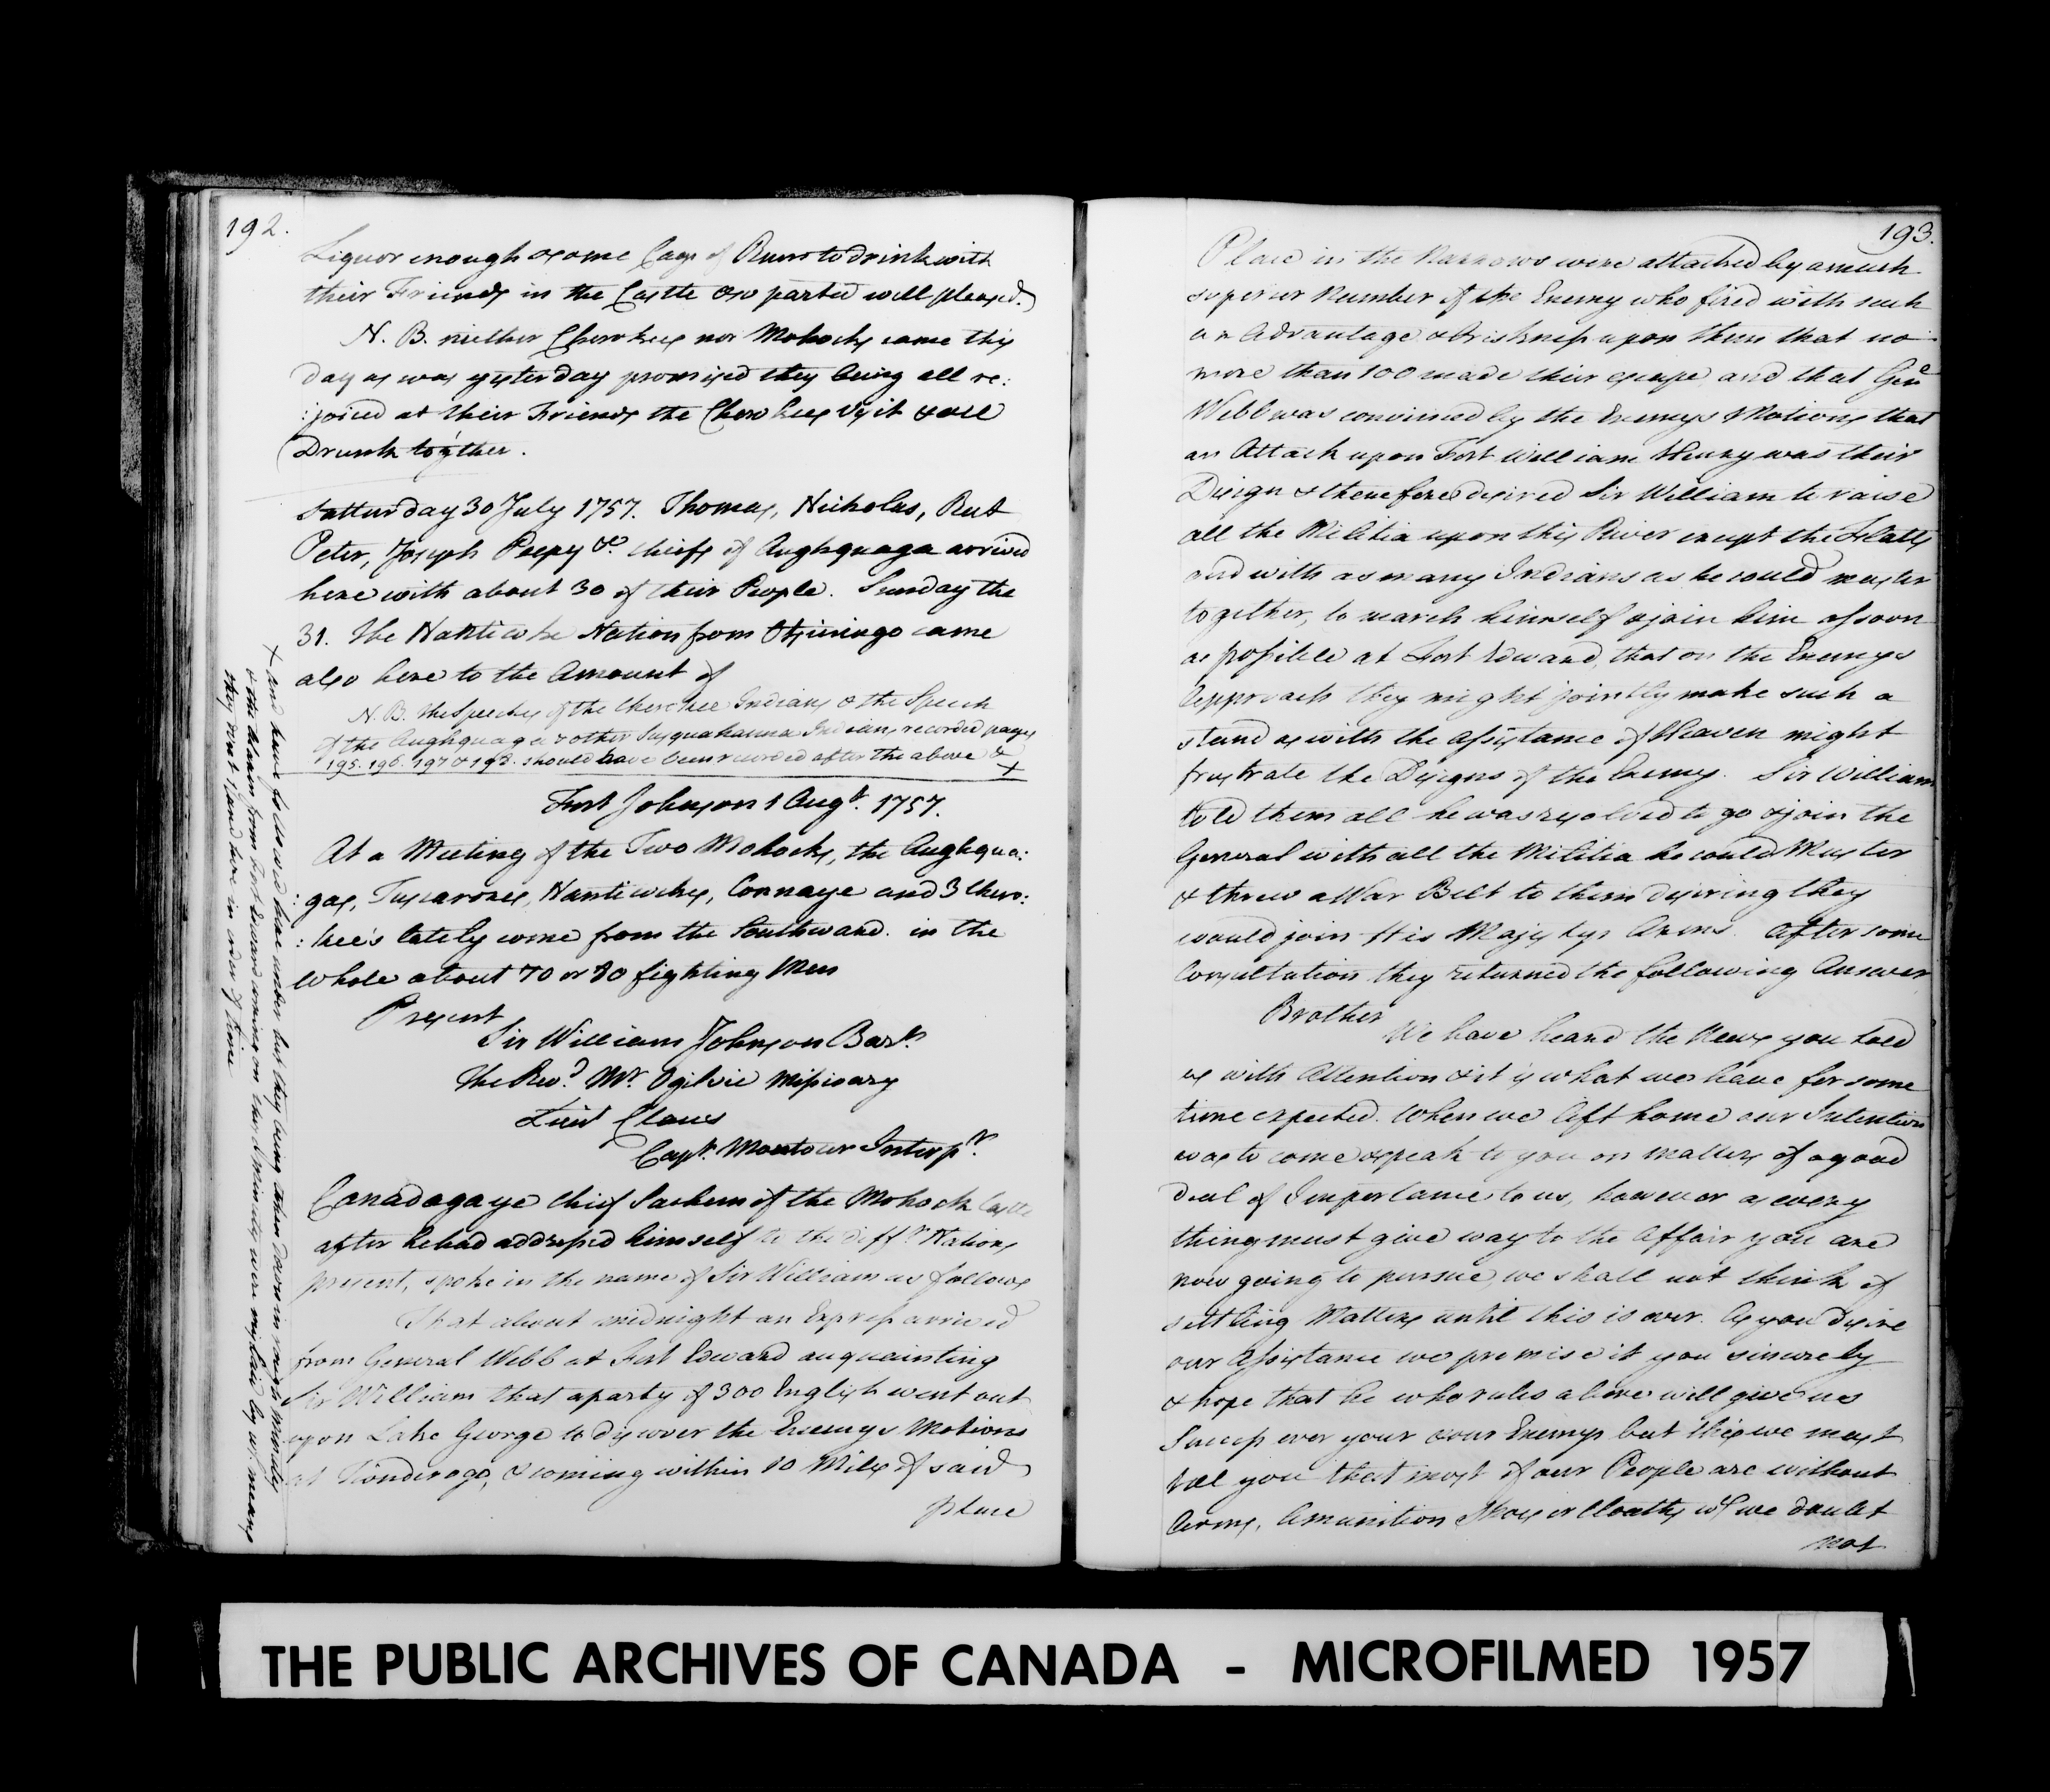 192.
Liquor enough & some Cags of Rum to drink with
their Friends in the Castle & so parted well pleased.
N. B. niether Cherokees nor Mohocks came this
day as was yesterday promised they being all re:
:joiced at their Friends the Cherokees Visit & all
Drunk together.
Satturday 30 July 1757. Thomas, Nicholas, Rut
Peter, Joseph Peepy &c. chiefs of Aughquaga arrived
here with about 30 of their People. Sunday the
31. the Nanticoke Nation from Otsiningo came
also here to the Amount of
N. B. the Speeches of the Cherokee Indians & the Speech
of the Aughquaga & other Susquahanna Indians, recorded pages
195. 196. 197 & 198. should have been recorded after the above &
+
+ and have followed here under but they being taken down in rough Minutes
& the Alarm from Fort Edward coming on immediately, were mislaid by wch. means
they dont stand here in order of time
Fort Johnson 1 Augt. 1757.
At a Meeting of the Two Mohocks, the Aughqua:
:gas, Tuscarores, Nanticokes, Connaye and 3 Chero:
:kee's lately come from the Southward. in the
whole about 70 or 80 fighting Men
Present
Sir William Johnson Bart.
The Revd. Mr. Ogilvie Missionary
Lieut Claus
Capt. Montour Interpr.
Canadagaye chief Sachem of the Mohock Castle
after he had addressed himself to the difft. Nations
present, spoke in the name of Sir William as follows
That about midnight an Express arrived
from General Webb at Fort Edward acquainting
Sir William that a party of 300 English went out
upon Lake George to discover the Enemys Motions
at Tionderoga, & coming within 10 Miles of said
place
193.
Place in the Narrows were attacked by a much
superior Number of the Enemy who fired with such
an Advantage & briskness upon them that no
more than 100 made their escape, and that Genl
Webb was convinced by the Enemys Motions that
an Attack upon Fort William Henry was their
Design & therefore desired Sir William to raise
all the Militia upon this River except the Flatts
and with as many Indians as he could muster
together, to march himself & join him as soon
as possible at Fort Edward, that on the Enemys
Approach they might jointly make such a
stand as with the Assistance of Heaven might
frustrate the Designs of the Enemy. Sir William
told them all he was resolved to go & join the
General with all the Militia he could Muster
& threw a War Belt to them desiring they
would join His Majestys Arms. After some
Consultation they returned the following Answer
Brother
We have heard the News you told
us with Attention & it is what we have for some
time expected. When we left home our Intention
was to come & speak to you on matters of a good
deal of Importance to us, however as every
thing must give way to the Affair you are
now going to pursue, we shall not think of
settling Matters until this is over. As you desire
our Assistance we promise it you sincerely
& hope that he who rules above will give us
Success over your & our Enemys but this we must
tell you that most of our People are without
Arms, Amunition Shoes or Cloaths wch. we doubt
not
THE PUBLIC ARCHIVES OF CANADA - MICROFILMED 1957